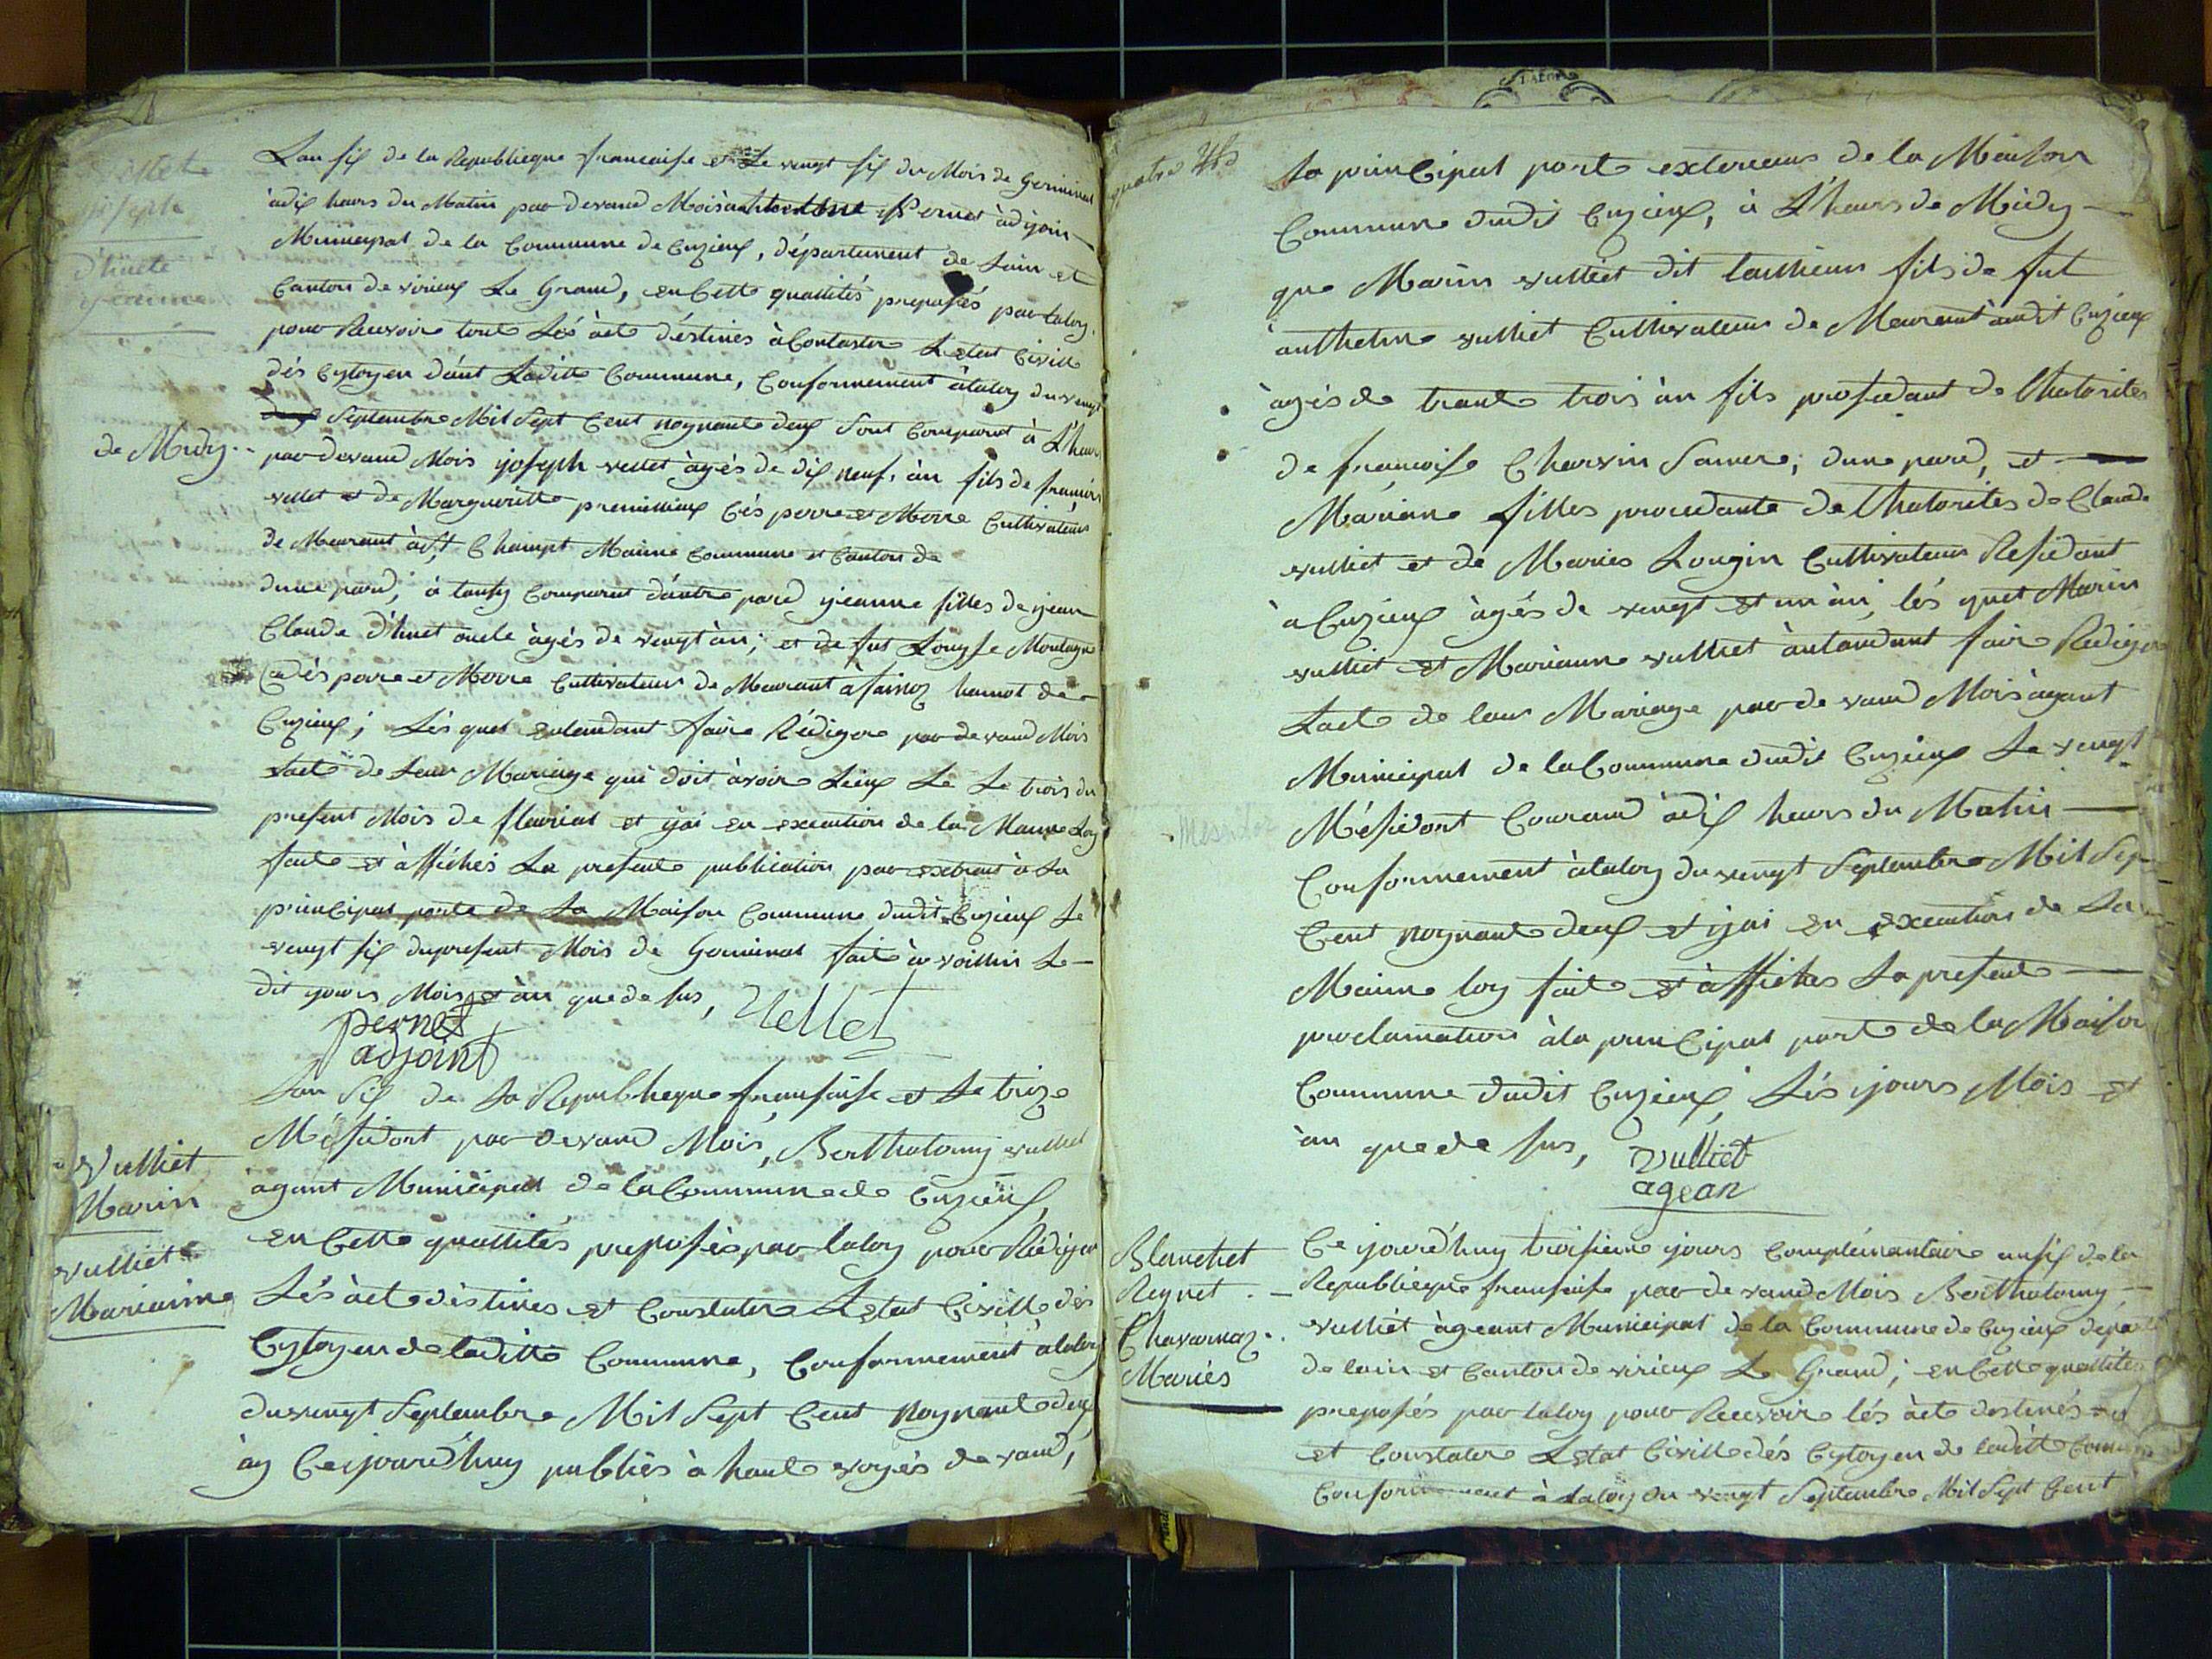 Vellet
joseph
d'huet
jeanne
Lan six de la Republieque francaise et Le vengt six du Mois de Germinal
à dix heurs du Matin par devand Moi anthelme Pernet àdjoin
Municipal de la Commune de Cuzieux, département de Lain et
Canton de virieux Le Grand, en Cette quallités preposés par laloy
pour Recevoir toute Lés àcte déstines à Contaster L'etat Civille
dés Cytoyen dánt Laditte Commune, Conformement àlaloy du vengt
Septembre Mil Sept Cent nognante deux Sont Comparut à L'heur
de Midy
par devand Mois joseph vellet àgés de dix neuf àn fils de francois
vellet et de Margueritte premillieux Cés perre et Merre Cultivateurs
de Meurant à St Chempt Maime Commune et Canton de
dune pard, à tousy Comparut dáutre pard jeanne filles de jean
Claude d'huet oncle àgés de vengt àn; et de fut Louyse Montagne
Cés perre et Merre Cultivateur de Meurant à hamot de
Cuzieux; Lés quel entandant faire Rédigere par devand Mois
Lacte de Leur Mariage qui doit àvoir Lieux Le Le trois du
present Mois de flaurial et jai en execution de la Mame Loy
faite et àffichés La presente publication par extrait à La
principal porte de La Maison Commune dudit Cuzieux Le
vengt six du present Mois de Germinal fait à voillin Le
dit jours Mois et àn que de sus, Vellet
pernet
adjoint
Lan Six de La Republieque fransaise et Le trize
Mésidort par devand Mois, Berthalomy vulliet
àgant Municipal de la Commune de Cuzieux,
en Cette quallités preposés par laloy pour Rédiger
Lés àcte déstines et Constater L'etat Civille dés
Cytoyen de laditte Commune, Conformement àlaloy
du vengt Septembre Mil Sept Cent nognante deux
ày Cejourd'huy publiés à haute voyés devand,
Vulliet
Marin
vulliet
Marianne
quatre
La principal porte exterieur de la Maison
Commune dudit Cuzieux, à L'heurs de Midy
que Marin vulliet dit fils de fut
anthelme vulliet Cultivateur de Meurant àudit Cuzieux
àgés de trante trois àn fils prosedant de l'hatorites
de francoise Charvin Samere, dune pard, et
Mariane filles procedante de l'hatorites de Claude
vulliet et de Maries Lougin Cultivateur Residant
à Cuzieux àgés de vengt et un àn, lés quel Marin
vulliet et Marianne vulliet àntandant faire Rediger
Lacte de leur Mariage par de vand Mois àgant
Municipal de la Commune dudit Cuzieux Le vengt
Mésidort Courand àdix heurs du Matin
Messidor
Conformement àlaloy du vengt Septembre Mil Sept
Cent nognante deux et jai en execution de La
Maime loy faite et àffiches La presente
proclamation àla principal porte de la Maison
Commune dudit Cuzieux, Lés jours Mois et
àn que de sus, vulliet
agean
Blanchet
Reynet
Chavarnoz
Mariés
Ce jourd'huy troisieme jours Complémantaire an six de la
Republieque fransaise par de vand Mois Berthalomy
vulliet àgeant Municipal de la Commune de Cuzieux depart
de lain et Canton de virieux Le Grand; en Cette quallites
preposés par laloy pour Recevoir lés àcte destinés
et Constater L'etat Civille dés Cytoyen de laditte Commune
Conformement à Laloy du vengt Septembre Mil Sept Cent